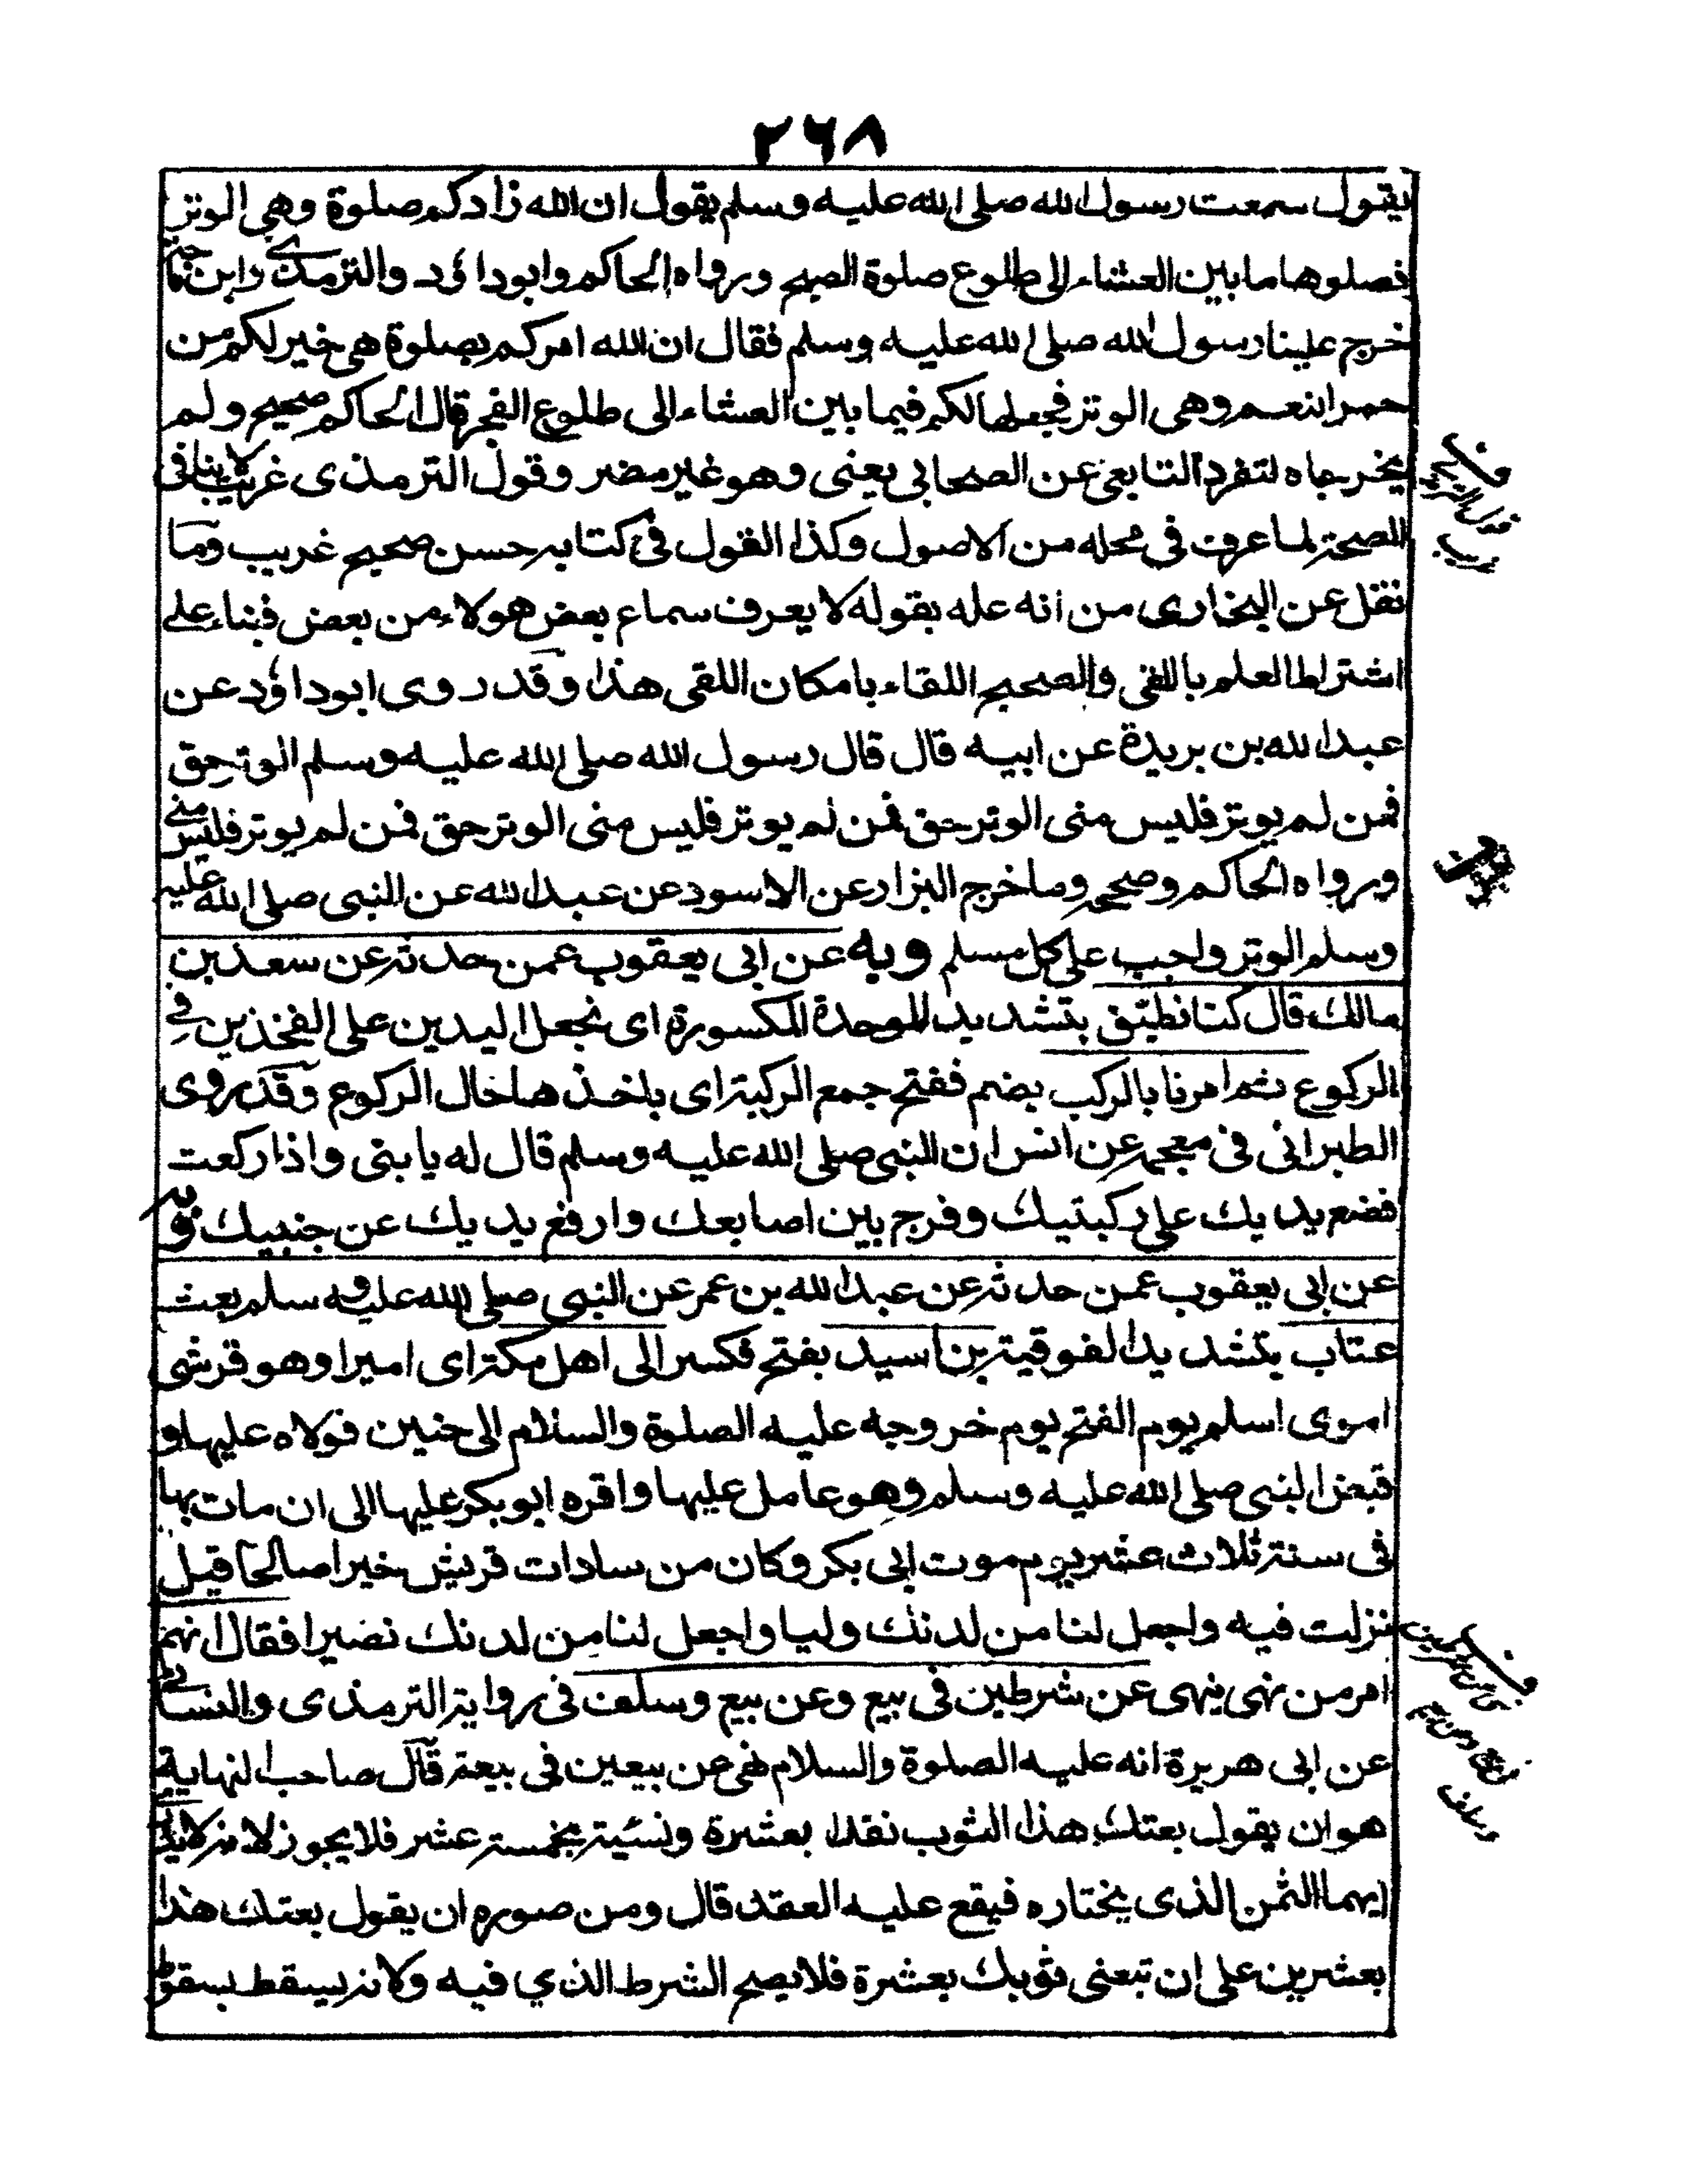 ٢٦٨
يقول سمعت رسول الله صلى الله عليه وسلم يقول ان الله زادكم صلوة وهي الوتر
فصلوها ما بين العشاء الى طلوع صلوة الصبح ورواه الحاكم وابوداؤد والترمذي وابن ماجة
خرج علينا رسول الله صلى الله عليه وسلم فقال ان الله امركم بصلوة هي خير لكم من
حمر النعم وهى الوتر فجعلها لكم فيما بين العشاء الى طلوع الفجر قال الحاكم صحيح ولم
يخرجاه لتفرد التابعي عن الصحابى يعنى وهو غير مضر وقول الترمذى غريب لا ينافى
الصحة لما عرف فى محله من الاصول وكذا القول فى كتابه حسن صحيح غريب وما
نقل عن البخارى من انه عله بقوله لا يعرف سماع بعض هولاء من بعض فبناء على
اشتراط العلم باللقى والصحيح اللقاء بامكان اللقى هذا وقد روى ابوداؤد عن
عبدالله بن بريدة عن ابيه قال قال رسول الله صلى الله عليه وسلم الوتر حق
فمن لم يوتر فليس منى الوتر حق فمن لم يوتر فليس منى الوتر حق فمن لم يوتر فليس منى
ورواه الحاكم وصححه وما خرج البزار عن الاسود عن عبدالله عن النبى صلى الله عليه
وسلم الوتر واجب على كل مسلم وبه عن ابى يعقوب عمن حدثه عن سعد بن
مالك قال كنا نطبق بتشديد الموحدة المكسورة اى نجعل اليدين على الفخذين فى
الركوع ثم امرنا بالركب بضم ففتح جمع الركبة اى باخذها حال الركوع وقد روى
الطبرانى فى معجمه عن انس ان النبى صلى الله عليه وسلم قال له يا بنى واذا ركعت
فضع يديك على ركبتيك وفرج بين اصابعك وارفع يديك عن جنبيك وبه
عن ابى يعقوب عمن حدثه عن عبدالله بن عمر عن النبى صلى الله عليه وسلم بعث
عتاب بتشديد الفوقية بن اسيد بفتح فكسر الى اهل مكة اى اميرا وهو قرشى
اموى اسلم يوم الفتح يوم خروجه عليه الصلوة والسلام الى حنين فولاه عليها و
قبض النبى صلى الله عليه وسلم وهو عامل عليها واقره ابوبكر عليها الى ان مات بها
فى سنة ثلاث عشر يوم موت ابى بكر وكان من سادات قريش خيرا صالحا قيل
نزلت فيه واجعل لنا من لدنك وليا واجعل لنا من لدنك نصيرا فقال انهم
امر من نهى ينهى عن شرطين فى بيع وعن بيع وسلف فى رواية الترمذى والنسائى
عن ابى هريرة انه عليه الصلوة والسلام نهى عن بيعين فى بيعة قال صاحب النهاية
هو ان يقول بعتك هذا الثوب نقدا بعشرة ونسئية بخمسة عشر فلا يجوز لانه لا
ايهما الثمن الذى يختاره فيقع عليه العقد قال ومن صوره ان يقول بعتك هذا
بعشرين على ان تبعنى ثوبك بعشرة فلا يصح الشرط الذي فيه ولانه يسقط بسقوط